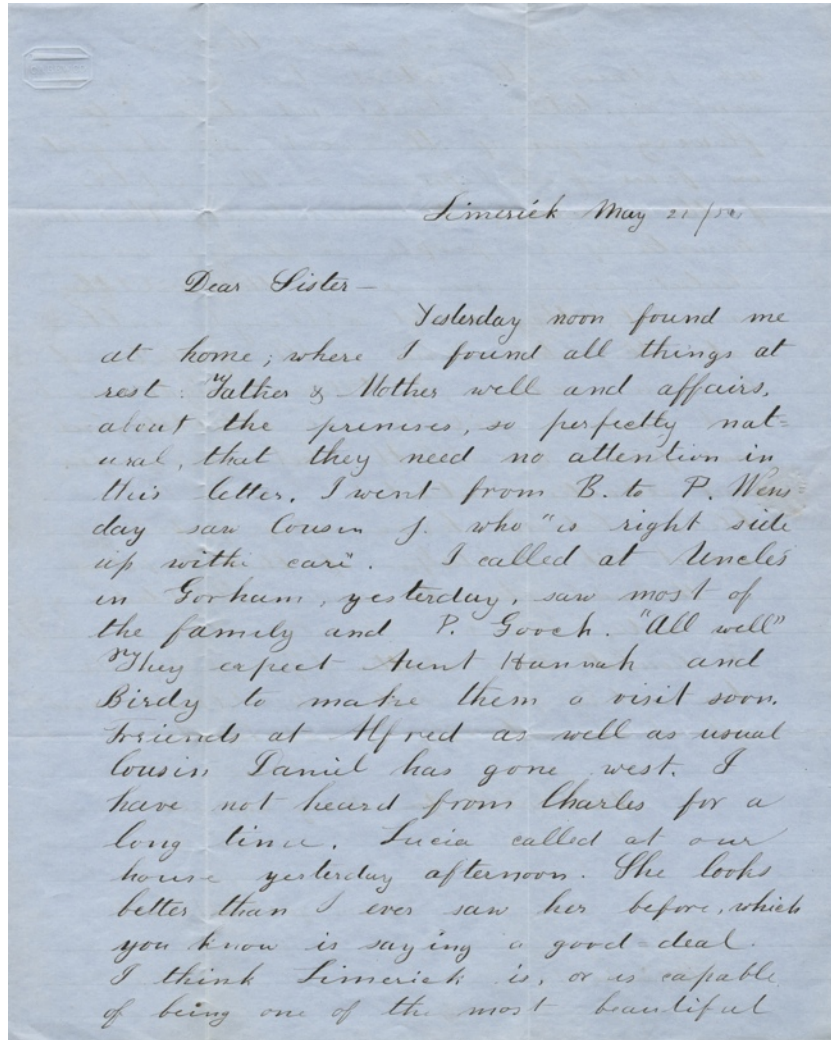 Limerick May 21
Dear Sister –
Yesterday noon found me
at home; where I found all things at
rest: Father & Mother well and affairs,
about the premises, so perfectly nat=
ural, that they need no attention in
this letter. I went from B. to P. Wens=
day saw Cousin J. who "is right side
up with care". I called at Uncles
in Gorham, yesterday, saw most of
the family and P. Gooch. "All well"
They expect Aunt Hannah and
Birdy to make them a visit soon.
Friends at Alfred as well as usual
Cousin Daniel has gone west. I
have not heard from Charles for a
long time. Lucia called at our
house yesterday afternoon. She looks
better than I ever saw her before, which
you know is saying a good-deal.
I think Limerick is, or is capable
of being one of the most beautiful